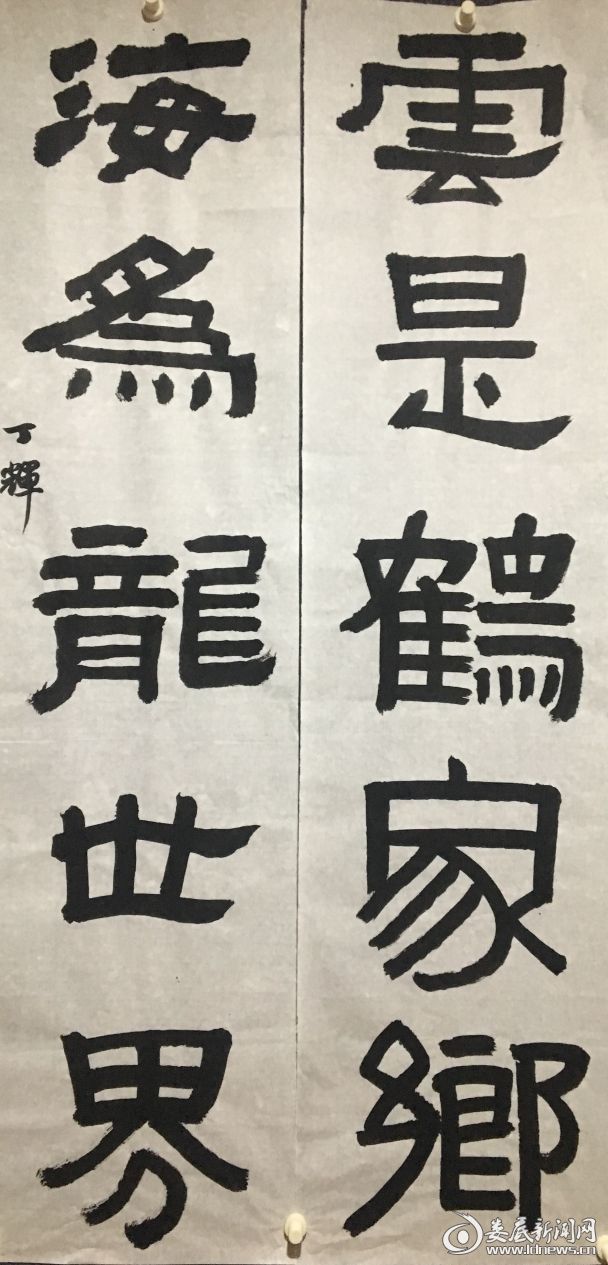 雲是鶴家鄉
海為龍世界
丁輝
娄底新闻网
www.ldnews.cn